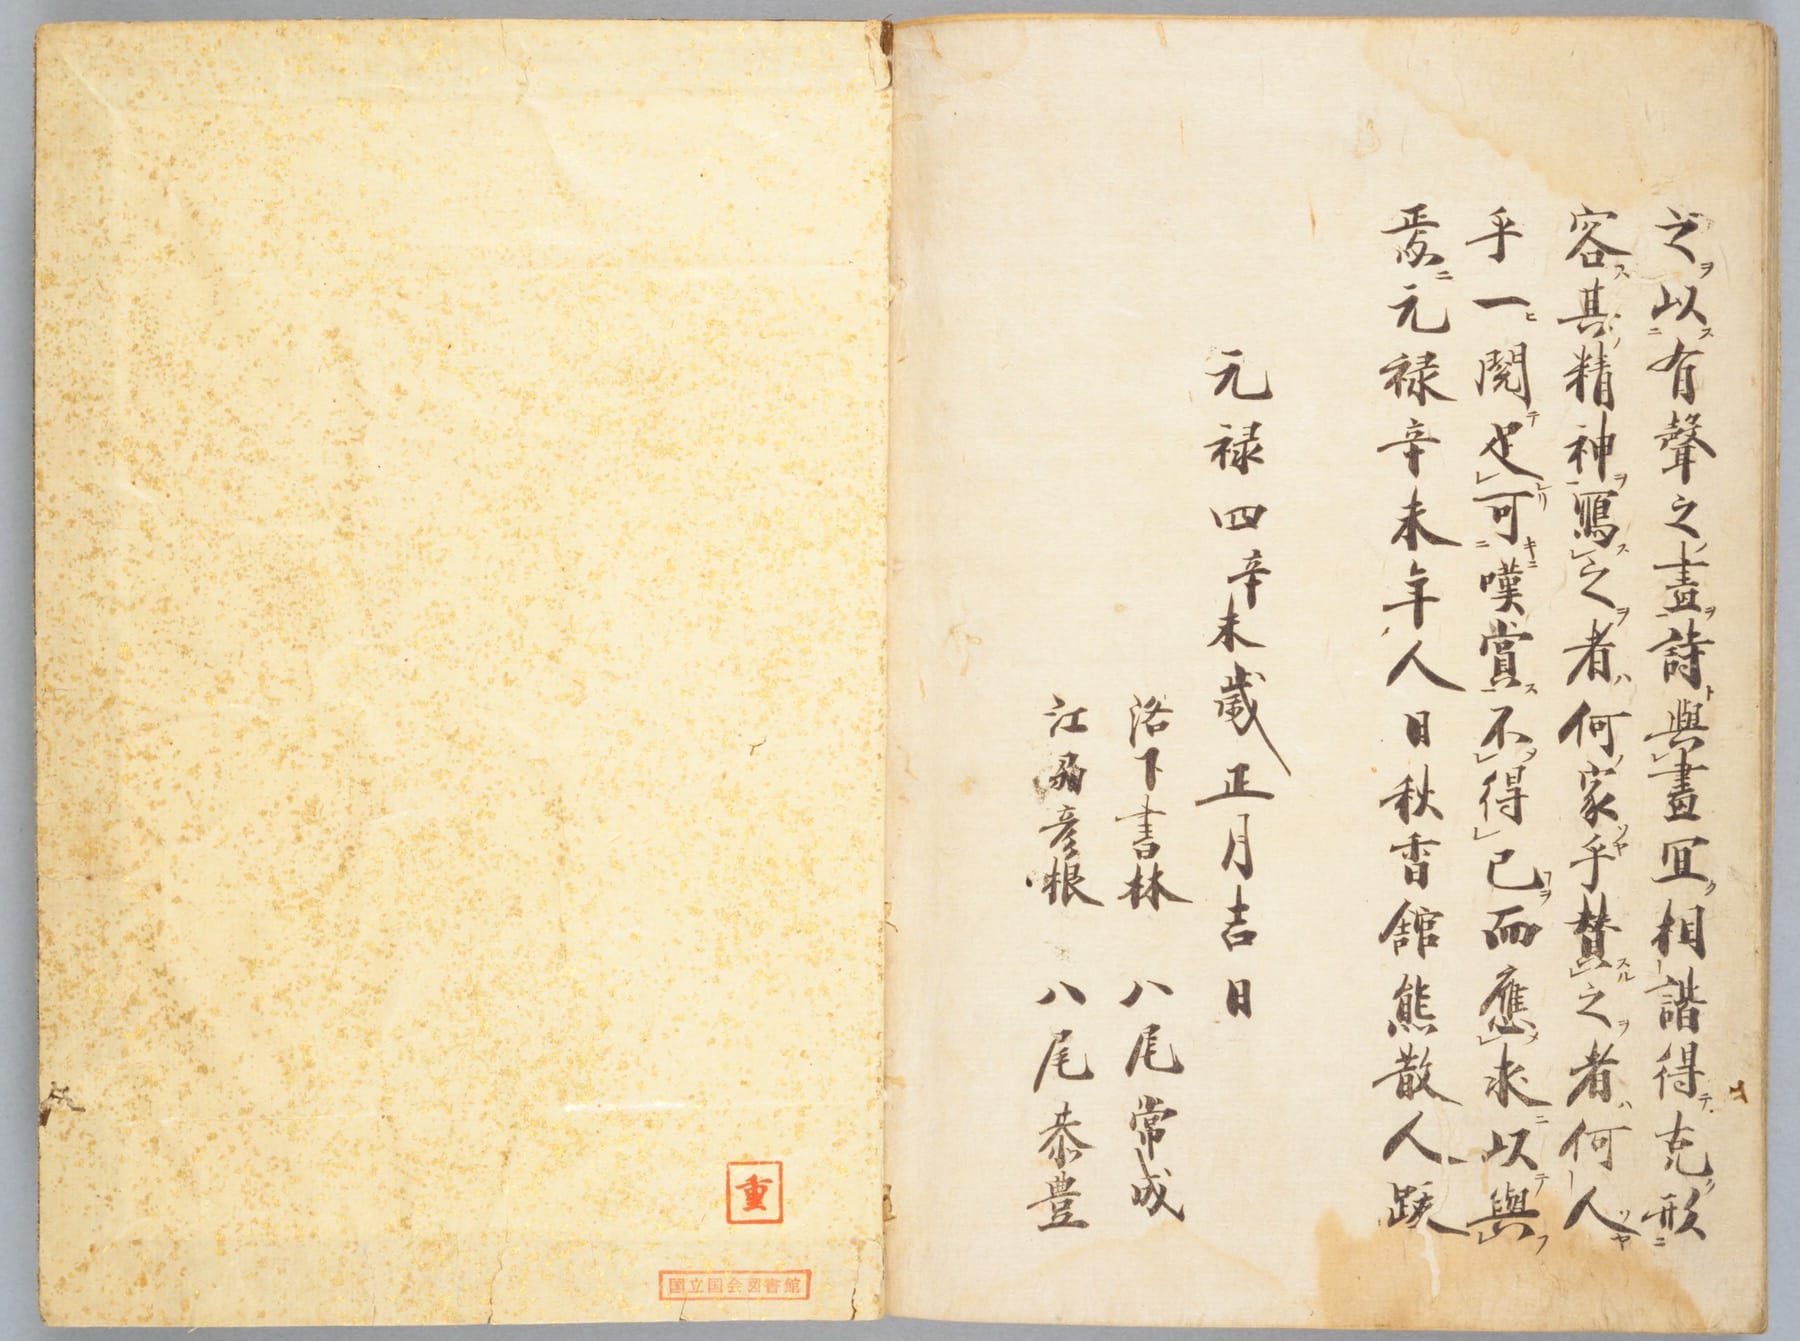 之以有聲之畫詩與畫冝相諧得克形
容其精神寫之者何家乎賛之者何人
乎一閲足可嘆賞不得已而應求以與
焉元禄辛未年人日秋香舘熊散人跋
元禄四辛未歳正月吉日
洛下書林 八尾常成
江州彦根 八尾恭豊
重
国立国会図書館